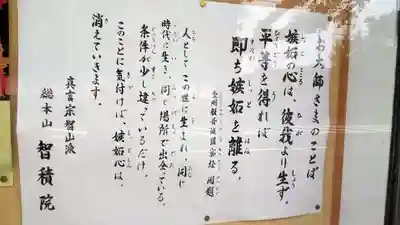 お大師さまのことば
嫉妬の心は、彼我より生ず。
平等を得れば
即ち嫉妬を離る。
人としてこの世に生まれ、同じ
時代に生き、同じ場所で出会っている。
条件が少し違っているだけ。
このことに気付けば、嫉妬心は、
消えていきます。
真言宗智山派
総本山 智積院